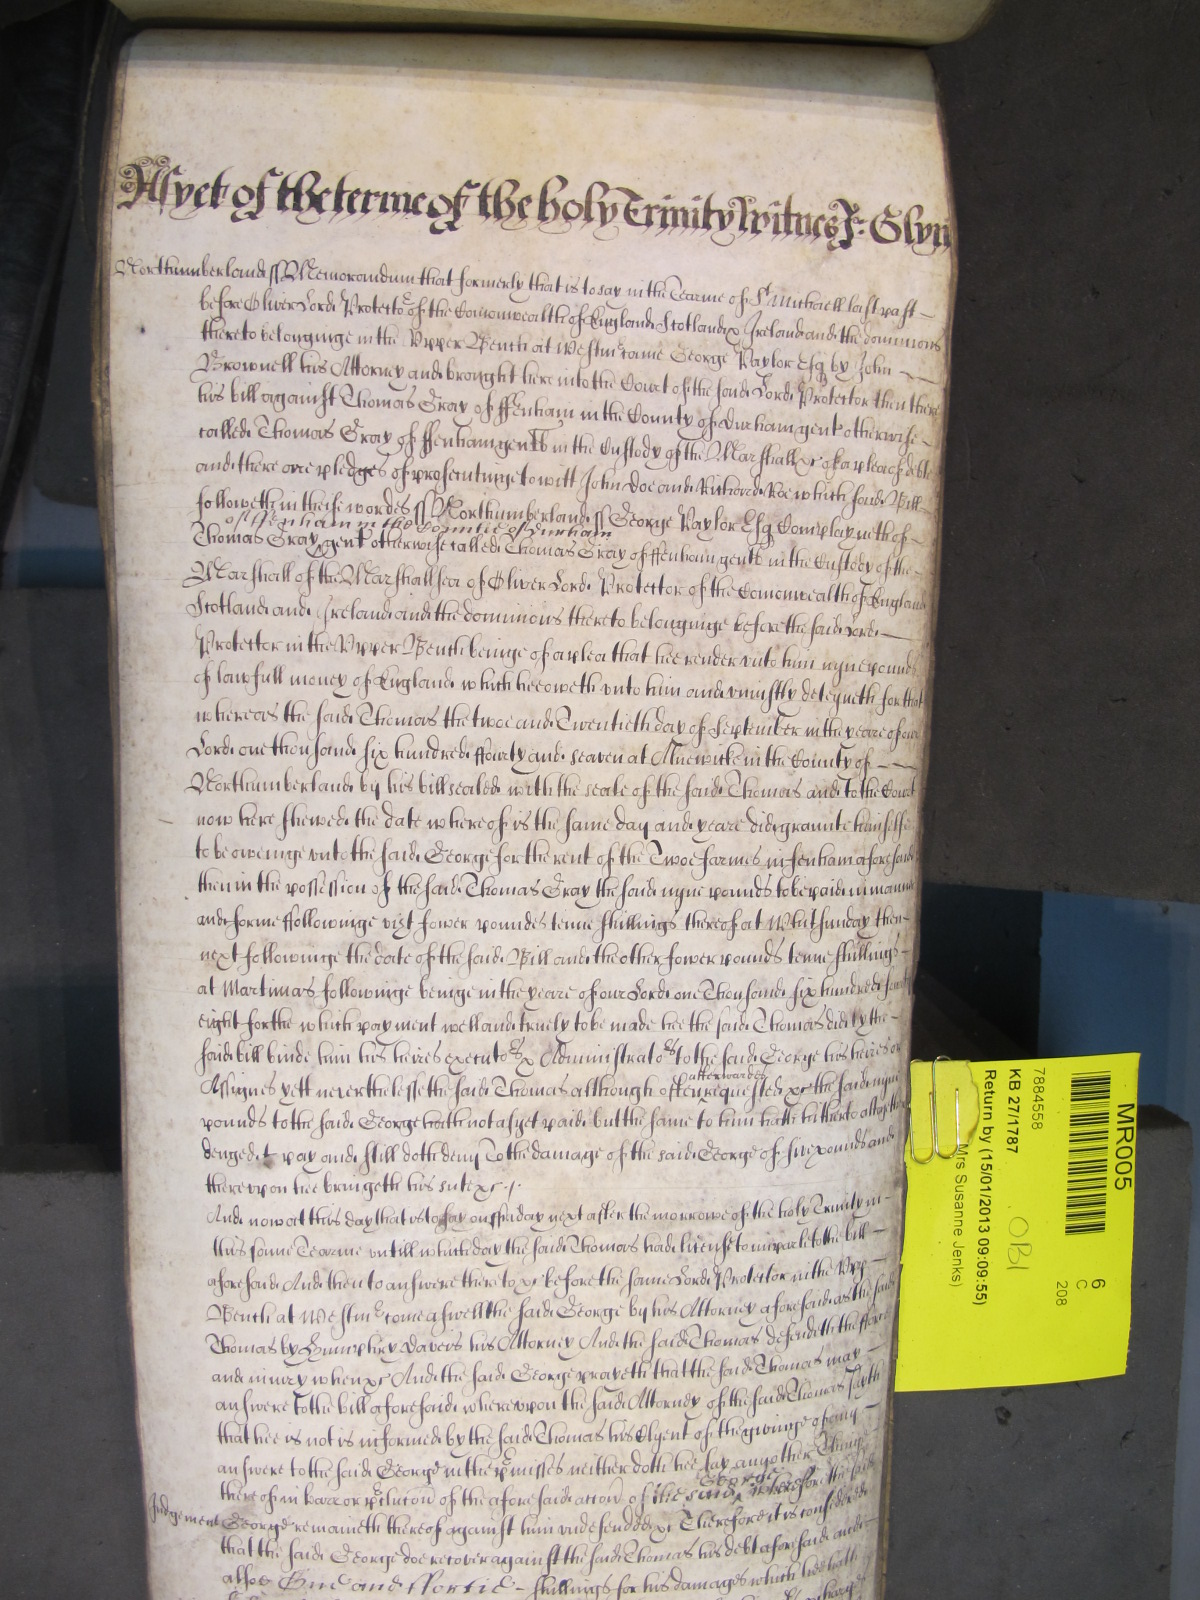 As yet of the terme of the holy Trinity Witnes J: Glyn
Northumberland ss Memorandum that formerly that is to say in the Tearme of St Michaell last past
before Oliver Lord Protector of the Comonwealth of England Scotland & Ireland and the dominions
thereto belonginge in the Upper Bench at Westmr came George Paylor Esq by John
Brownell his Attorney and brought here into the Court of the said Lord Protector then there
his bill against Thomas Gray of ffenham in the County of Durham gent otherwise
called Thomas Gray of ffenham gent in the Custody of the Marshall &c of a plea of debt
and there are pledges of prosecutinge to witt John Doe and Richard Roe which said Bill
followeth in theise wordes ss Northumberland ss George Paylor Esq Complayneth of
of ffenham in the Countie of Durham
Thomas Gray gent otherwise called Thomas Gray of ffenham gent in the Custody of the
Marshall of the Marshallsea of Oliver Lord Protector of the Comonwealth of England
Scotland and Ireland and the dominions thereto belonginge before the said Lord
Protector in the Upper Bench beinge of a plea that hee render unto him nyne pounds
of lawfull money of England which hee oweth unto him and uniustly deteyneth for that
whereas the said Thomas the twoe and Twentieth day of September in the yeare of our
Lord one thousand six hundred ffourty and seaven at Alnewicke in the County of
Northumberland by his bill sealed with the seale of the said Thomas and to the Court
now here shewed the date whereof is the same day and yeare did graunte himselfe
to be oweinge unto the said George for the rent of the Twoe farmes in fenham aforesaid
then in the possession of the said Thomas Gray the said nyne pounds to be paid in manner
and forme ffollowinge vizt fower poundes tenne shillings thereof at Whitsunday then
next followinge the date of the said Bill and the other fower pounds tenne shillings
at Martimas followinge beinge in the yeare of our Lord one Thousand six hundred fourty
eight for the which payment well and truely to be made hee the said Thomas did by the
said bill binde him his heires executors & Administrators to the said George his heires or
afterwardes
Assignes yett neverthelesse the said Thomas although often requested &c the said nyne
pounds to the said George hath not as yet paid but the same to him hath hitherto altogether
denyed to pay and still doth deny To the damage of the said George of five pounds and
thereupon hee bringeth his sute &c
And now at this day that is to say on ffriday next after the morrowe of the holy Trinity in
this same Tearme untill which day the said Thomas had license to imparle to the bill
aforesaid And then to answere thereto &c before the same Lord Protector in the Upp
Bench at Westmr come aswell the said George by his Attorney aforesaid as the said
Thomas by Humphry Davers his Attorney And the said Thomas defendeth the fforce
and iniury when &c And the said George prayeth that the said Thomas may
answere to the bill aforesaid whereupon the said Attorney of the said Thomas sayth
that hee is not informed by the said Thomas his Clyent of the givinge of any
answere to the said George in the premisses neither doth hee say any other Thinge
George
thereof in barr or preclucion of the aforesaid action of the said wherefore the said
Judgement George remaineth thereof against him undefended &c Therefore it is considered
that the said George doe recover against the said Thomas his debt aforesaid and
alsoe One and ffortie shillings for his damages which hee hath
MR005
6
C
208
7884558
KB 27/1787
OBI
Return by (15/01/2013 09:09:55)
Mrs Susanne Jenks)